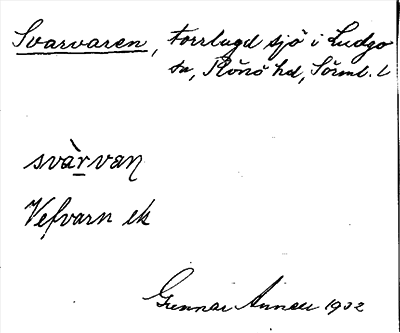 Svarvaren, torrlagd sjö i Ludgo
sn, Rönö hd, Sörml. l
svàrvan
Vefvarn ek
Gunnar 1902